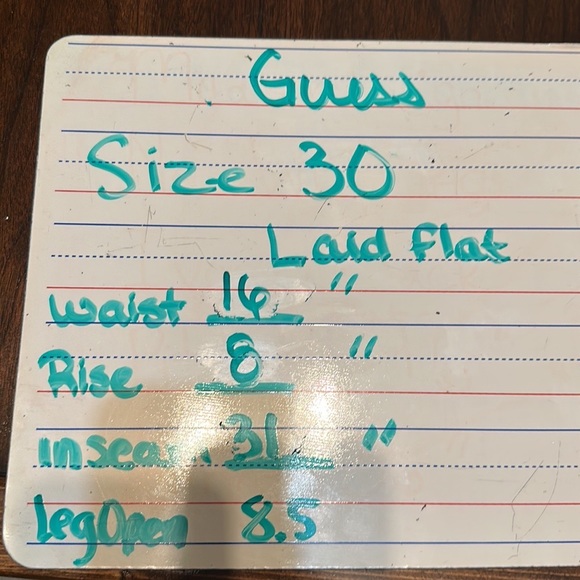 Guess
Size 30
Laid flat
Waist 16 "
Rise 8 "
inseam 31 "
Leg Open 8.5